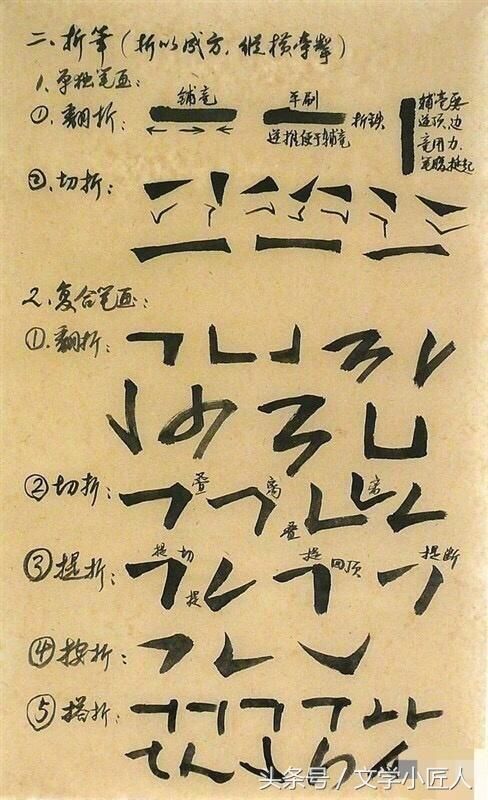 二、折笔（折以成方，纵横牵掣）
1、单独笔画：
①、翻折：
铺毫
平刷
逆推便于铺毫
折锋
铺毫要
逆顶、边
毫用力、
笔腹挺起
②、切折：
2、复合笔画：
①、翻折：
②切折：
叠
离
叠
离
③提折：
提 切
提
提 回顶
提断
④按折：
⑤搭折：
头条号 / 文学小匠人